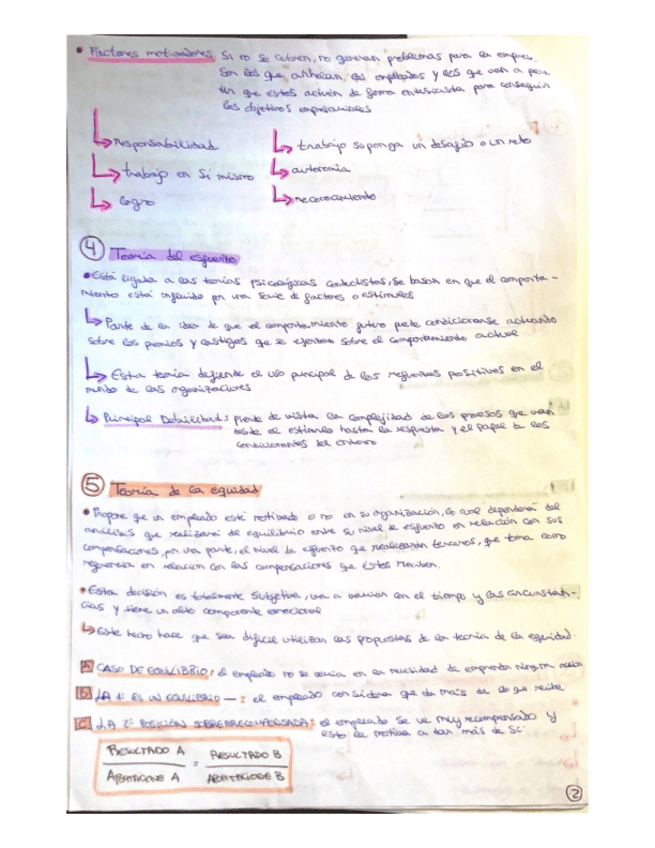 • Factores motivadores Si no se cubren, no generan problemas para la empresa.
Son los que anhelan los empleados y los que van a
que estos actúen de forma entusiasta para conseguir
los objetivos empresariales
↳ responsabilidad
↳ trabajo suponga un desafío o un reto
↳ trabajo en sí mismo
↳ autonomía
↳ logro
↳ reconocimiento
④ Teoría del esfuerzo
• Está ligada a las teorías psicológicas conductistas, se basan en que el comporta-
miento está influido por una serie de factores o estímulos
↳ Parte de la idea de que el comportamiento futuro puede condicionarse actuando
sobre los premios y castigos que se ejercen sobre el comportamiento actual
↳ Esta teoría defiende el uso principal de los refuerzos positivos en el
mundo de las organizaciones
↳ Principal Debilidad: pierde de vista la complejidad de los procesos que van
desde el estímulo hasta la respuesta y el papel de los
condicionantes del entorno
⑤ Teoría de la equidad
• Propone que un empleado esté motivado o no en su organización, lo cual dependerá del
análisis que realizará del equilibrio entre su nivel de esfuerzo en relación con sus
compensaciones, por una parte, el nivel de esfuerzo que realizarán terceros, que toma como
referencia en relación con las compensaciones que éstos reciben.
• Esta decisión es totalmente subjetiva, va a variar con el tiempo y las circunstan-
cias y tiene un alto componente emocional
↳ Este hecho hace que sea difícil utilizar las propuestas de la teoría de la equidad.
A CASO DE EQUILIBRIO: el empleado no se en la necesidad de emprender ninguna acción
B LA 1ª ES UN EQUILIBRIO —: el empleado considera que da más de lo que recibe
C LA 2ª POSICIÓN SOBRERRECOMPENSADA: el empleado se ve muy recompensado y
esto le motiva a dar más de sí.
RESULTADO A = RESULTADO B
APORTACIONE A APORTACIODE B
②